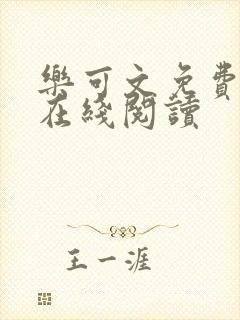 樂可文免費
在綫閱讀
王一涯